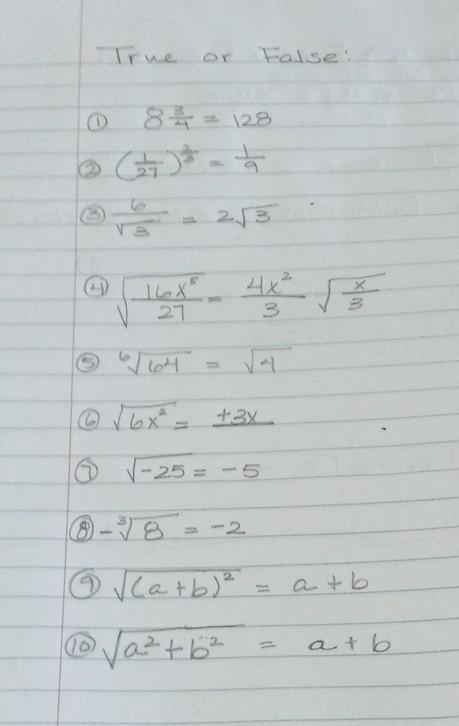 True or False:
① 8 3/4 = 128
② (1/27)^2/3 = 1/9
③ 6/√3 = 2√3
④ √(16x⁵/27) = 4x²/3 √(x/3)
⑤ ⁶√64 = √4
⑥ √6x² = ±3x
⑦ √-25 = -5
⑧ -³√8 = -2
⑨ √(a+b)² = a+b
⑩ √a²+b² = a+b